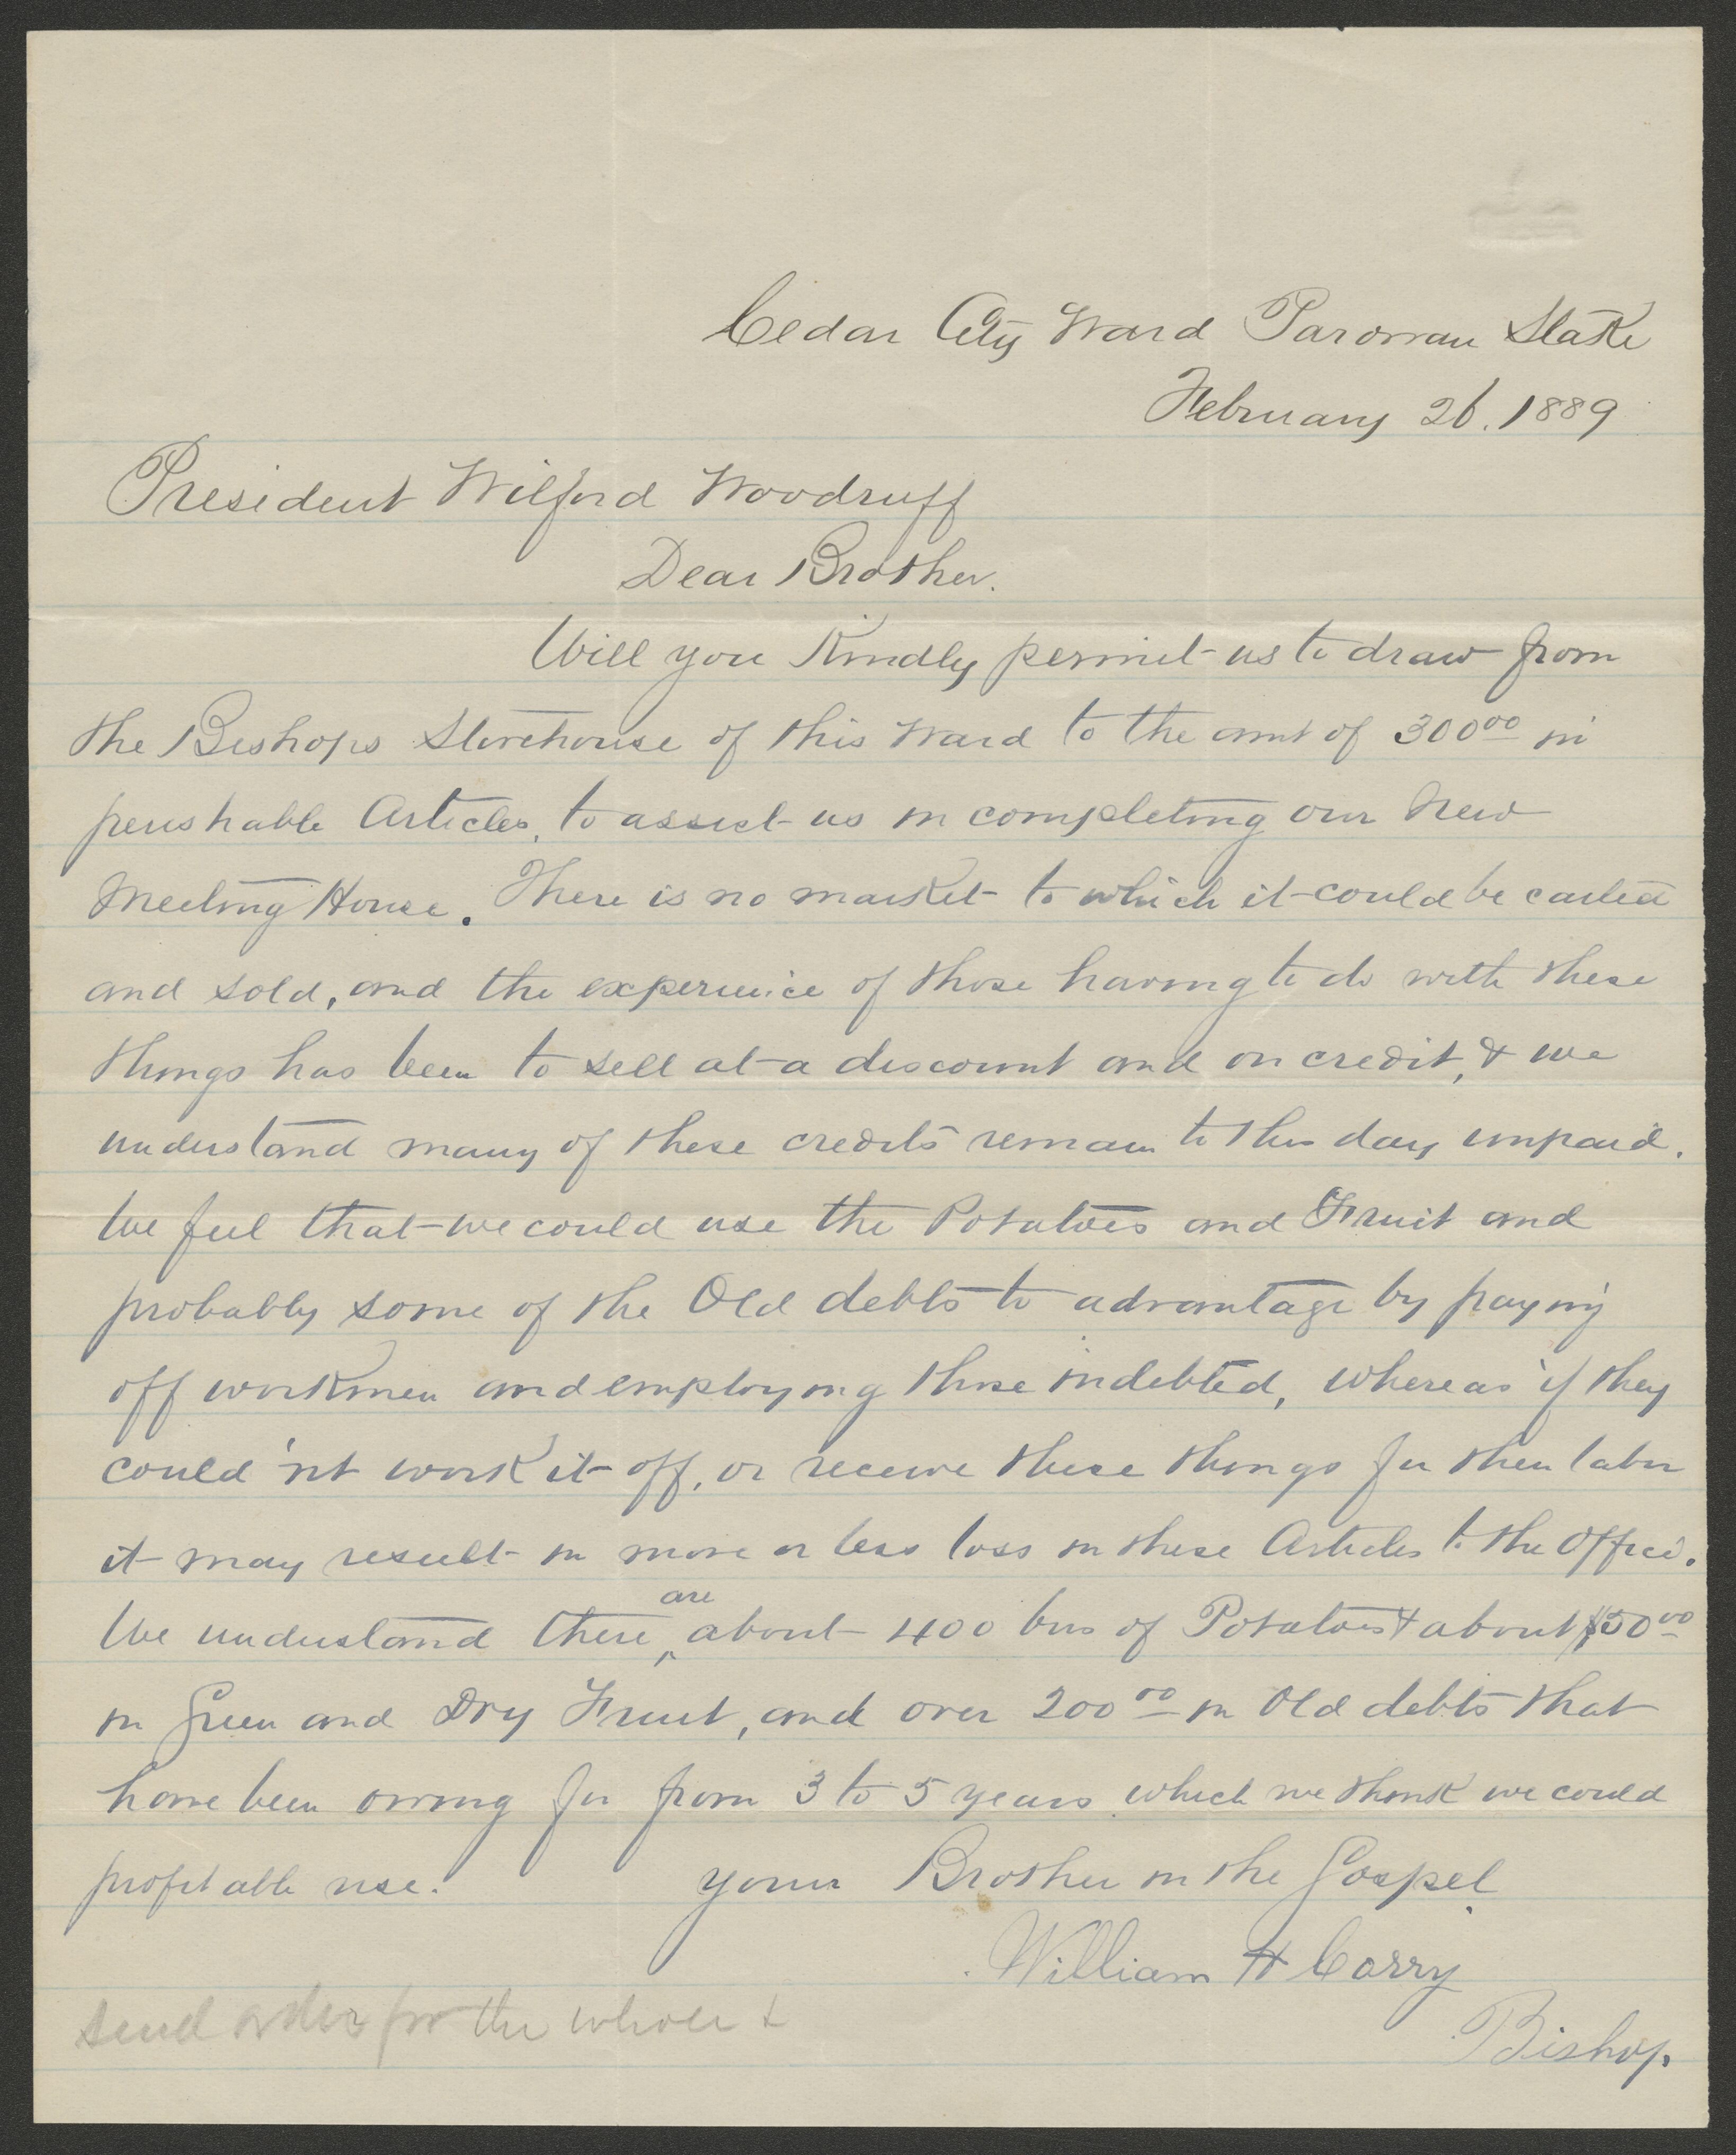 Cedar City Ward Parowan Stake
February 26. 1889
President Wilford Woodruff
Dear Brother.
Will you Kindly permit us to draw from
the Bishops Storehouse of this Ward to the amt of 300 00 in
perishable Articles, to assist us in completing our New
Meeting House. There is no market to which it could be carted
and sold, and the experience of those having to do with these
things has been to sell at a discount and on credit, & we
understand many of these credits remain to this day unpaid.
We feel that we could use the Potatoes and Fruit and
probably some of the Old debts to advantage by paying
off workmen and employing those indebted, whereas if they
could 'nt work it off, or receive these things for their labor
it may result in more or less loss in these Articles to the Office.
We understand there are about 400 bus of Potatoes & about $50 00
in Green and Dry Fruit, and over 200 00 in Old debts that
have been owing for from 3 to 5 years which we think we could
profitable use.
your Brother in the Gospel
William H Corry
Bishop.
send order for the whole